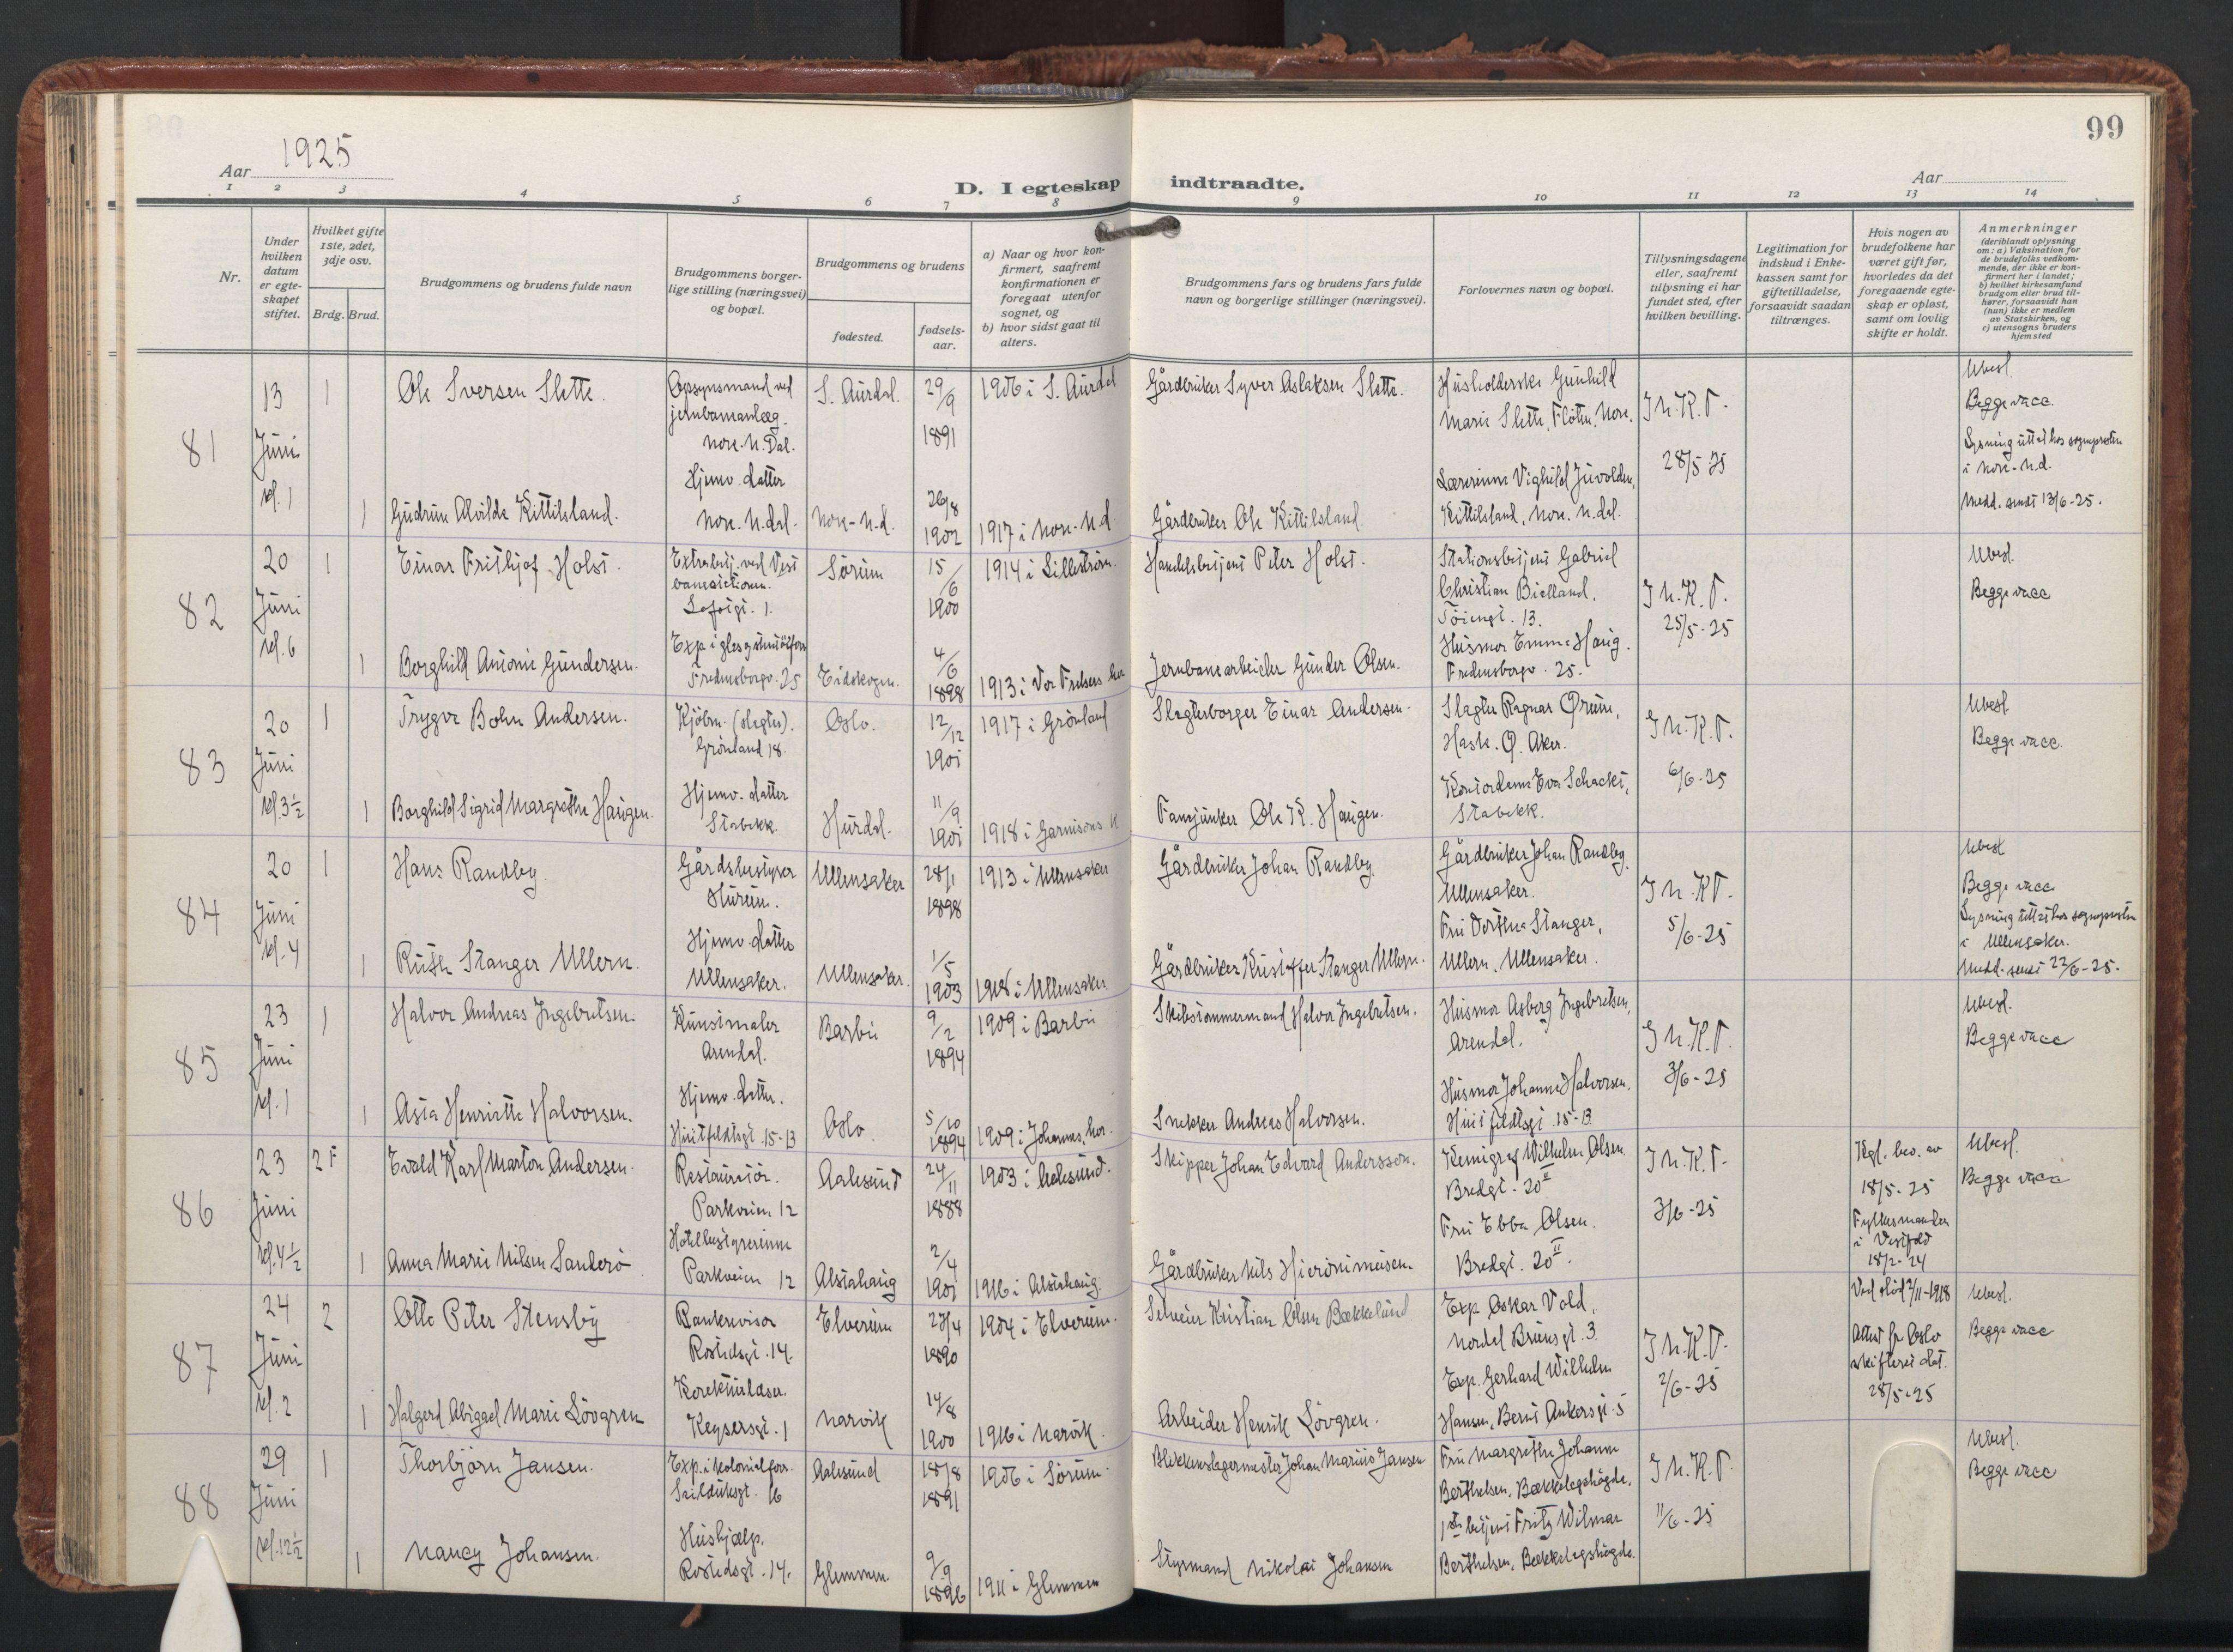 99
Aar 1925
Aar
D. I egteskap indtraadte.
1 2 3 4 5 6 7 8 9 10 11 12 13 14
Nr.
Under hvilken datum er egteskapet stiftet.
Hvilket gifte 1ste, 2det, 3dje osv.
Brdg. Brud.
Brudgommens og brudens fulde navn
Brudgommens borgerlige stilling (næringsvei) og bopæl.
Brudgommens og brudens
fødested.
fødselsaar.
a) Naar og hvor konfirmert, saafremt konfirmationen er foregaat utenfor sognet, og
b) hvor sidst gaat til alters.
Brudgommens fars og brudens fars fulde navn og borgerlige stillinger (næringsvei).
Forlovernes navn og bopæl.
Tillysningsdagene eller, saafremt tillysning ei har fundet sted, efter hvilken bevilling.
Legitimation for indskud i Enkekassen samt for giftetilladelse, forsaavidt saadan tiltrænges.
Hvis nogen av brudefolkene har været gift før, hvorledes da det foregaaende egteskap er opløst, samt om lovlig skifte er holdt.
Anmerkninger
(deriblandt oplysning om: a) Vaksination for de brudefolks vedkommende, der ikke er konfirmert her i landet; b) hvilket kirkesamfund brudgom eller brud tilhører, forsaavidt han (hun) ikke er medlem av Statskirken, og c) utensogns bruders hjemsted
81
13 Juni kl. 1
1
Ole Sversen Slette.
Opsynsmand ved jernbaneanlæg. Nore. N. Dal.
S. Aurdal.
29/9 1891
1906 i S. Aurdal
Gårdbruker Syver Aslaksen Slette.
Husholderske Gunhild Marie Slette, Fløtte, Nore.
J N. K. T.
28/5-25
Ubesl.
Begge vacc.
Lysning uttat hos sogneprsten i Nore. N.d.
Medd. sendt 13/6-25.
1
Gudrun Alvilde Kittilsland.
Hjemv. datter Nore. N.dal.
Nore-N.d.
26/8 1902
1917 i Nore-N.d.
Gårdbruker Ole Kittilsland
Lærerinne Vighild Juvolden, Kittilsland, Nore. N.dal.
82
20 Juni kl. 6
1
Einar Frithjof Holst.
Extrabetj. ved Vestbanestationen. Lofotgt. 1.
Sørum
15/6 1900
1914 i Lillestrøm.
Handelsbetjent Peter Holst.
Stationsbetjent Gabriel Christian Bielland, Tøiengt. 13.
J N. K. T.
25/5-25
Ubesl.
Begge vacc
1
Borghild Antonie Gundersen.
Fredensborgv. 25
Eidskogen.
4/6 1898
1913 i Vor Frelsers her
Jernbanearbeider Gunder Olsen.
Husmor Emma Haug. Fredensborgv. 25.
83
20 Juni kl. 3½
1
Trygve Bohn Andersen.
Kjøbm. (slagter). Grønland 18.
Oslo.
12/12 1901
1917 i Grønland
Slagterborger Einar Andersen.
Slagter Ragnar Ørum, Hasle. Ø. Aker.
J N. K. T.
6/6-25
Ubesl.
Begge vacc.
1
Borghild Sigrid Margrethe Haugen.
Hjemv. datter Stabekk.
Hurdal.
11/9 1901
1918 i Garnisons K
Fanejunker Ole K. Haugen.
Kontordame Eva Schackt, Stabekk.
84
20 Juni kl. 4
1
Hans Randby.
Gårdsbestyrer Hurum.
Ullensaker
28/1 1898
1913 i Ullensaker
Gårdbruker Johan Randby.
Gårdbruker Johan Randby. Ullensaker.
J N. K T.
5/6-25
Ubesl
Begge vacc
Lysning uttat hos sogneprsten i Ullensaker.
Medd. sendt 22/6-25.
1
Ruth Stanger Ullern.
Hjemv. datter Ullensaker.
Ullensaker.
1/5 1903
1918 i Ullensaker
Gårdbruker Kristoffer Stanger Ullern.
Fru Dorthea Stanger, Ullern, Ullensaker.
85
23 Juni kl. 1
1
Halvor Andreas Ingebretsen.
Kunstmaler Arendal.
Barbu
9/2 1894
1909 i Barbu
Skibstømmermand Halvor Ingebretsen.
Husmor Asborg Ingebretsen, Arendal.
J N. K. T.
3/6-25
Ubesl.
Begge vacc
1
Asta Henriette Halvorsen.
Hjemv. datter. Huitfeldtsgt. 15-13
Oslo.
5/10 1894
1909 i Johannes, her.
Snekker Andreas Halvorsen.
Husmor Johanne Halvorsen. Huitfeldtsgt 15-13
86
23 Juni kl. 4½
2 F
Evald Karl Marton Andersen.
Restauratør. Parkveien 12
Aalesund
24/11 1888
1903 i Aalesund.
Skipper Johan Edvard Andersson.
Kemigraf Wilhelm Olsen. Bredgt. 20 II
J N. K. T.
3/6-25
Kgl. bev. av 18/5-25
Fylkesmanden i Vestfold 18/2-24
Ubesl.
Begge vacc
1
Anna Marie Nilsen Sanderö
Hotelbestyrerinne Parkveien 12
Alstahaug
2/4 1901
1916 i Alstahaug.
Gårdbruker Nils Hieronimusen.
Fru Ebba Olsen. Bredgt. 20 II.
87
24 Juni kl. 2
2
Otto Peter Stensby
Bankrevisor Rostedsgt. 14.
Elverum
23/4 1890
1904 i Elverum.
Selveier Kristian Olsen Bækkelund
Exp. Oskar Vold, Nordal Brunsgt. 3.
J N. K. T.
2/6-25
Ved død 2/11-1918
Attest fr Oslo skifteret dat. 28/5-25
Ubesl.
Begge vacc
1
Halgerd Abigael Marie Lövgren
Korekturlæser. Keysersgt. 1
Narvik
14/8 1900
1916 i Narvik.
Arbeider Henrik Lövgren.
Exp. Gerhard Wilhelm Hansen, Bernt Ankersgt. 5
88
29 Juni kl. 12½
1
Thorbjørn Jansen.
Exp. i kolonialforr. Seilduksgt. 16
Aalesund
18/8 1891
1906 i Sørum.
Blikkenslagermester Johan Marius Jansen
Fru Margrethe Johanne Berthelsen, Bækkelagshøgda.
J N. K. T.
11/6-25
Ubesl.
Begge vacc
1
Nancy Johansen.
Hushjælp. Rostedsgt. 14.
Glemmen.
9/9 1896
1911 i Glemmen
Styrmand Nikolai Johansen
1ste betjent Fritz Wilmar Berthelsen, Bækkelagshøgda.